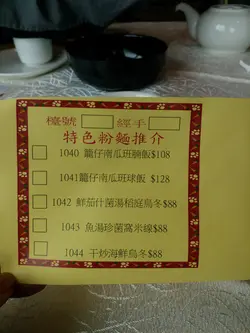 檯號 經手
特色粉麵推介
1040 籠仔南瓜班腩飯$108
1041籠仔南瓜班球飯 $128
1042 鮮茄什菌湯稻庭烏冬$88
1043 魚湯珍菌窩米線$88
1044 干炒海鮮烏冬$88